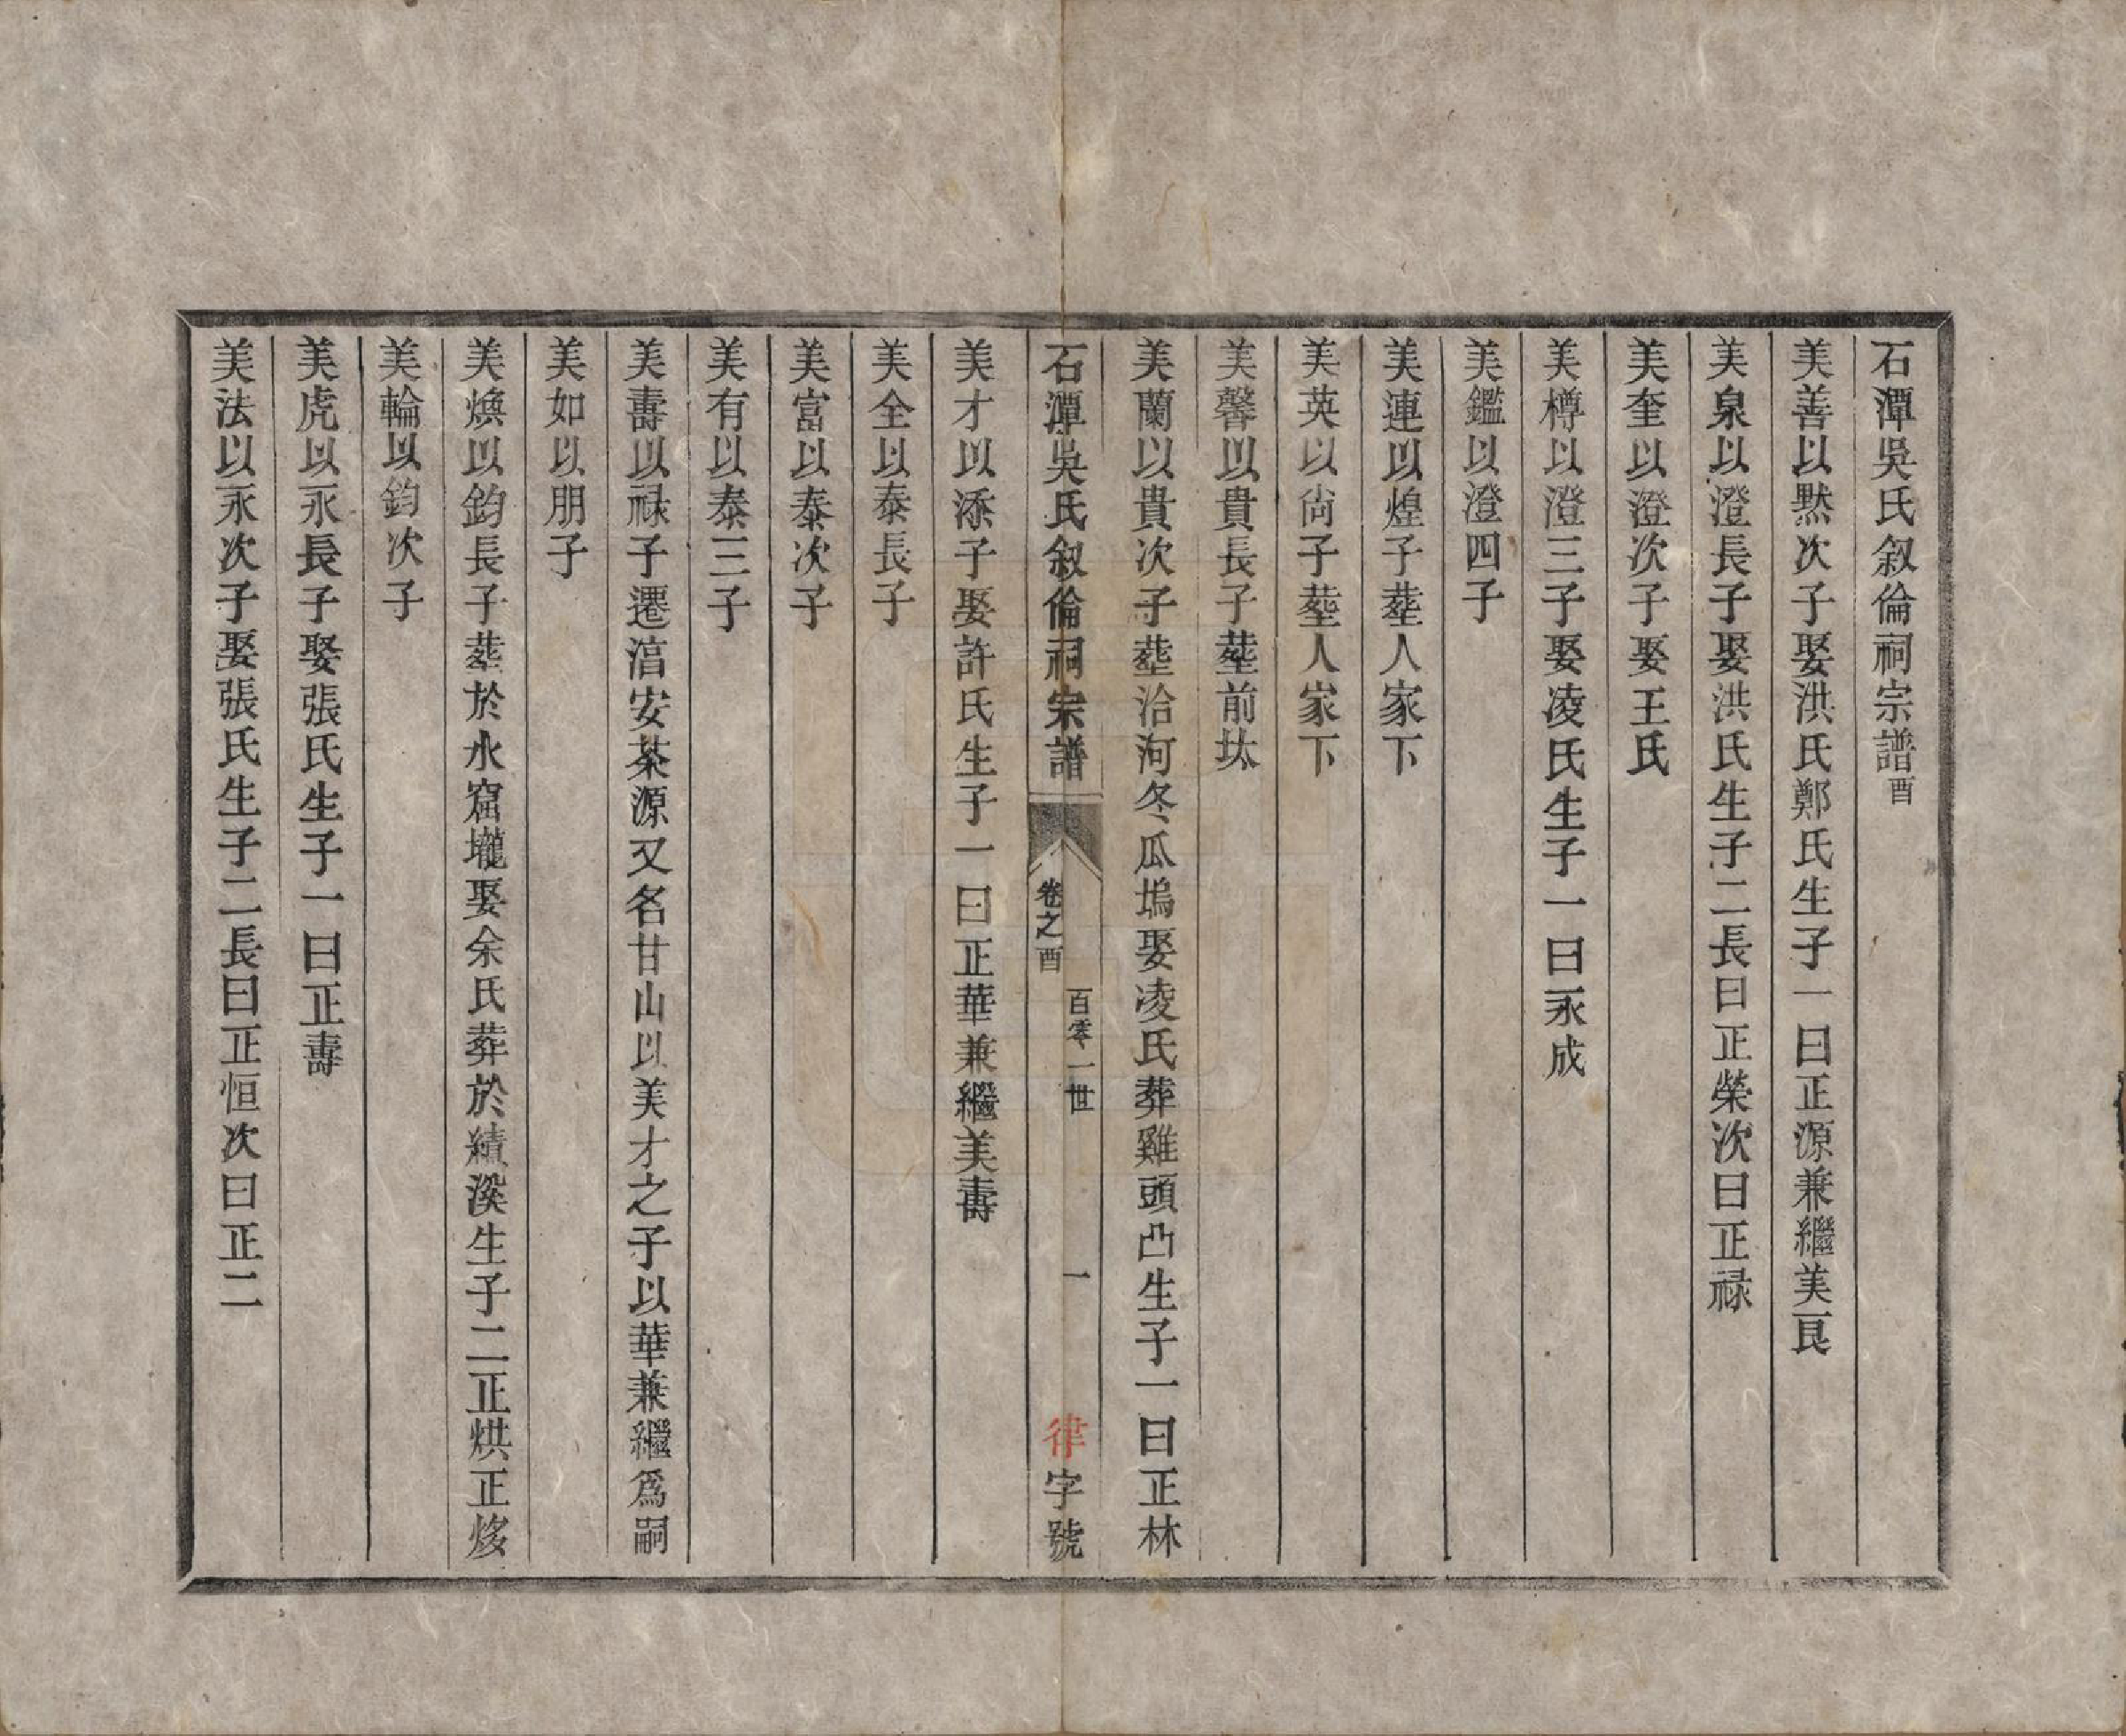 石潭吳氏叙倫祠宗譜酉
美善以黙次子娶洪氏鄭氏生子一曰正源兼繼美艮
美泉以澄長子娶洪氏生子二長曰正榮次曰正禄
美奎以澄次子娶王氏
美樽以澄三子娶凌氏生子一曰永成
美鑑以澄四子
美連以煌子塟人家下
美英以尙子塟人家下
美馨以貴長子塟前㘲
美蘭以貴次子塟洽河冬瓜塢娶凌氏葬雞頭凸生子一曰正林
石潭吳氏叙倫祠宗譜
卷之酉
百零一世
一
律字號
美才以添子娶許氏生子一曰正華兼繼美壽
美全以泰長子
美富以泰次子
美有以泰三子
美壽以禄子遷湻安茶源又名甘山以美才之子以華兼繼爲嗣
美如以朋子
美煥以鈞長子塟於水窟壠娶余氏葬於績溪生子二正烘正㶴
美輪以鈞次子
美虎以永長子娶張氏生子一曰正壽
美法以永次子娶張氏生子二長曰正恒次曰正二